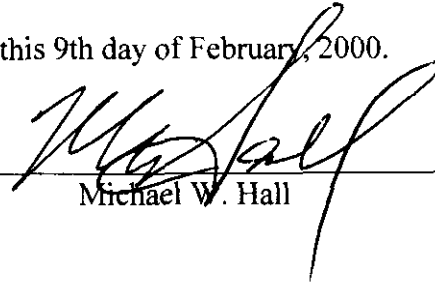 this 9th day of February, 2000.
Michael W. Hall